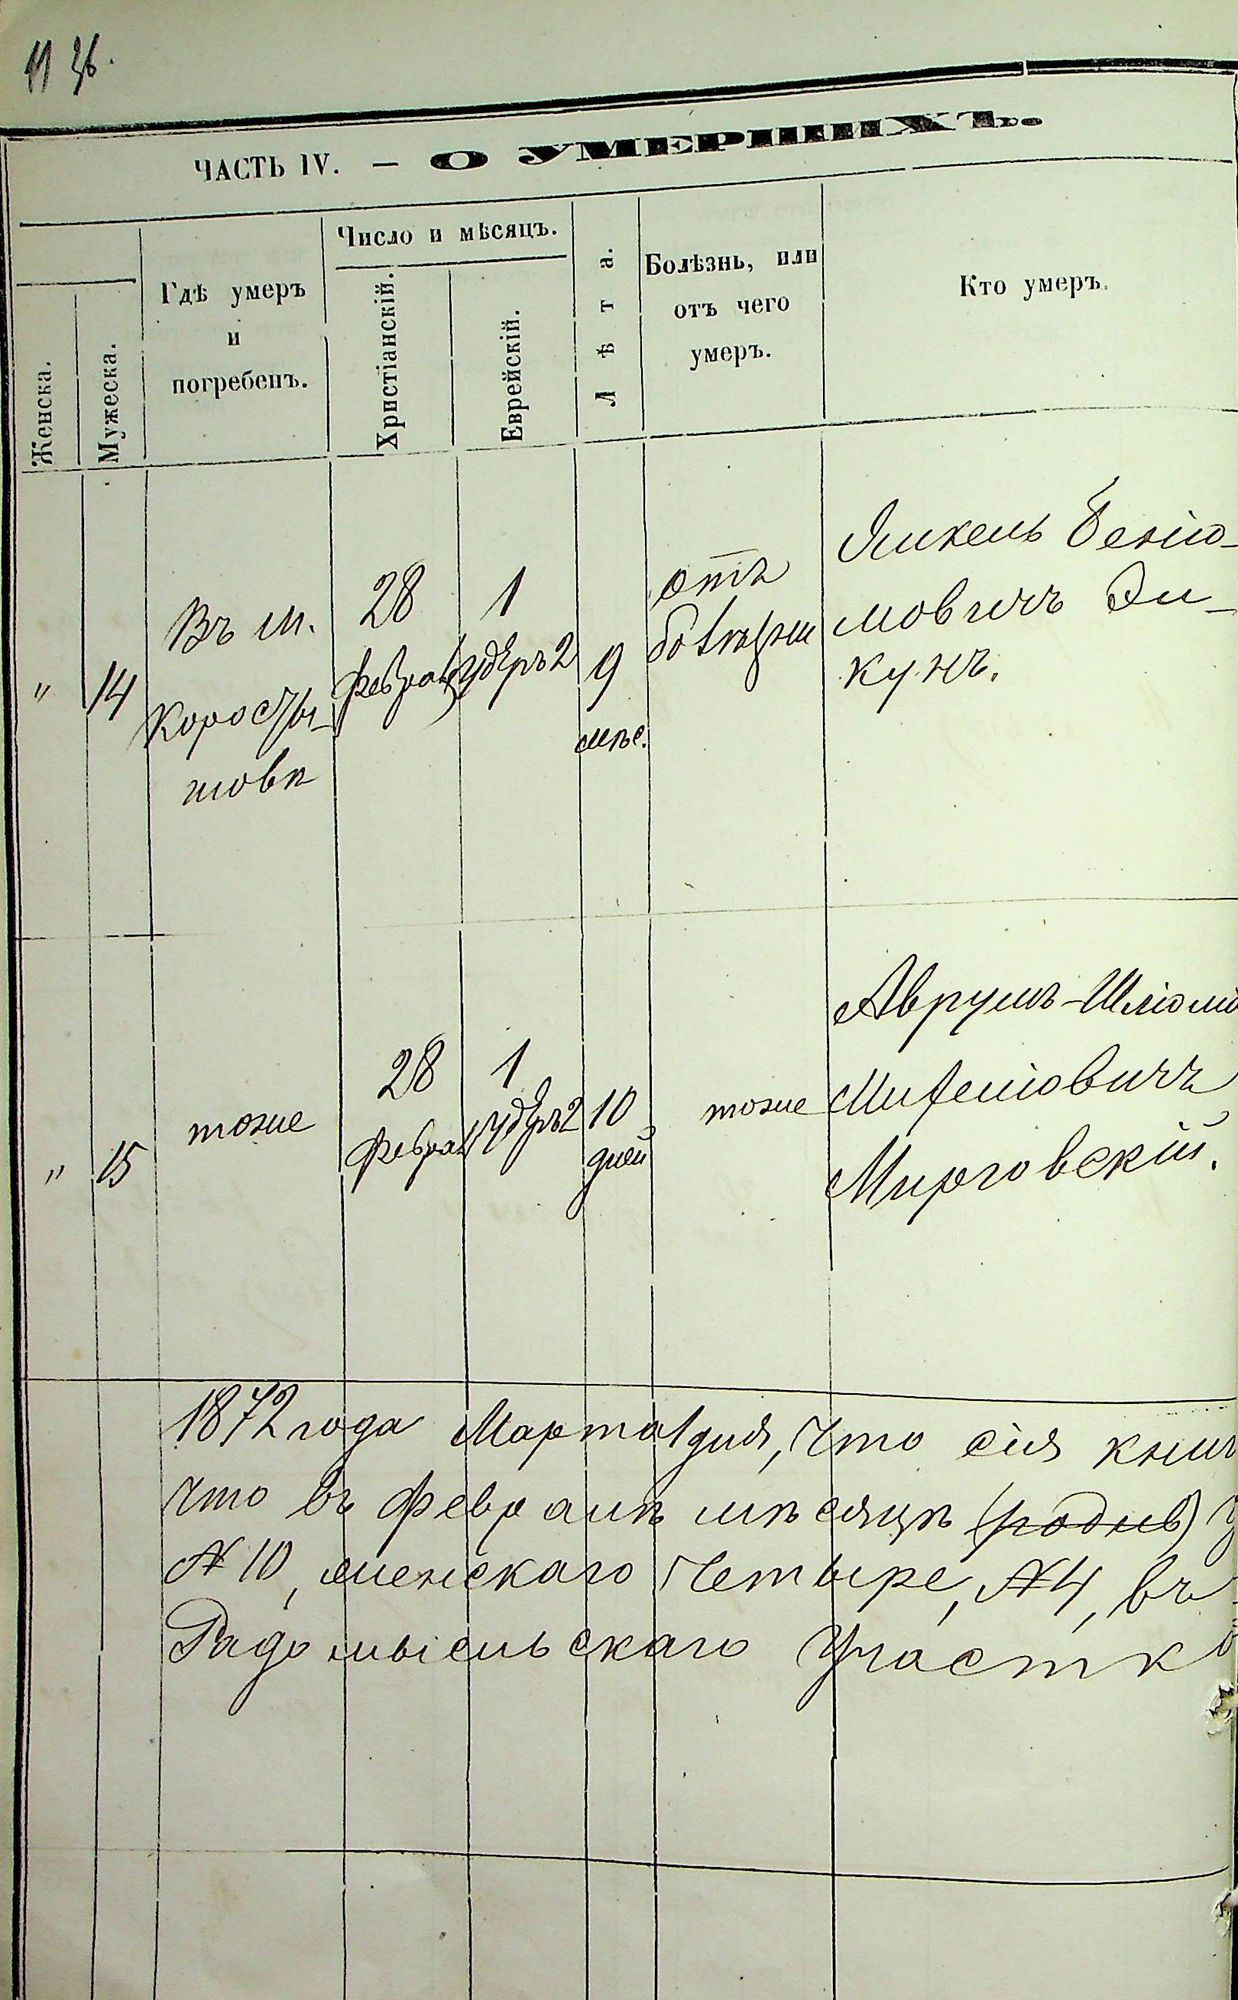 11 36.
ЧАСТЬ IV. — О УМЕРШИХЪ.
Женска.
Мужеска.
Гдѣ умеръ
и
погребенъ.
Число и мѣсяцъ.
Христіанскій.
Еврейскій.
Лѣта.
Болѣзнь, или
отъ чего
умеръ.
Кто умеръ.
" 14
Въ м.
Коросты-
шовѣ
28
февра
1
Удеръ 2
9
мѣс.
отъ
болѣзни
Янкель Беніо-
мовичъ Ди-
кунъ.
" 15
тоже
28
Февра
1
Удеръ 2
10
дней
тоже
Аврумъ-Шліомо
Мирговскій.
1872 года Марта 1 дня, что сія книг
что въ февралѣ мѣсяцѣ (родив) у
№ 10, женскаго Четыре, № 4, въ
Радомысльскаго Участко